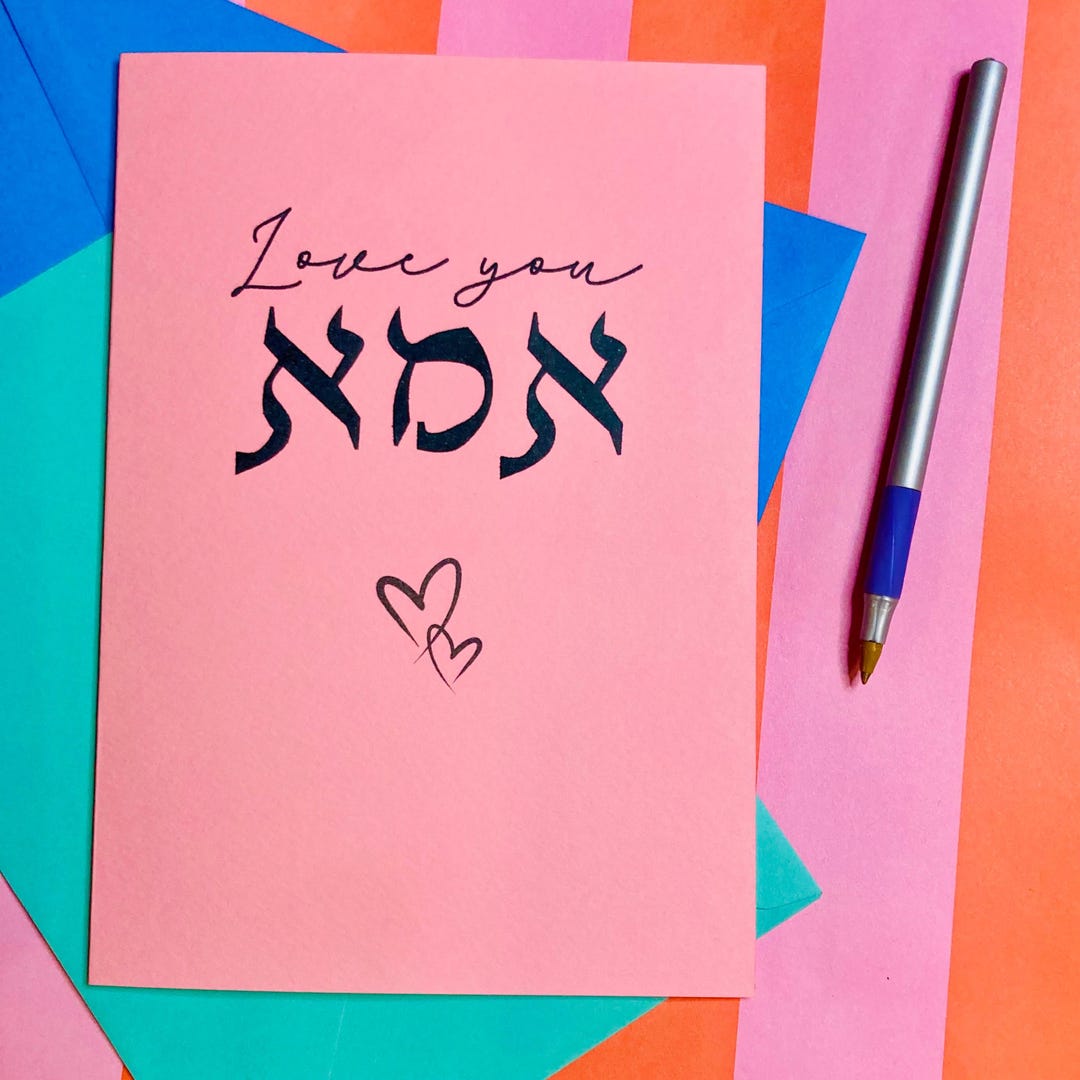 Love you
אמא